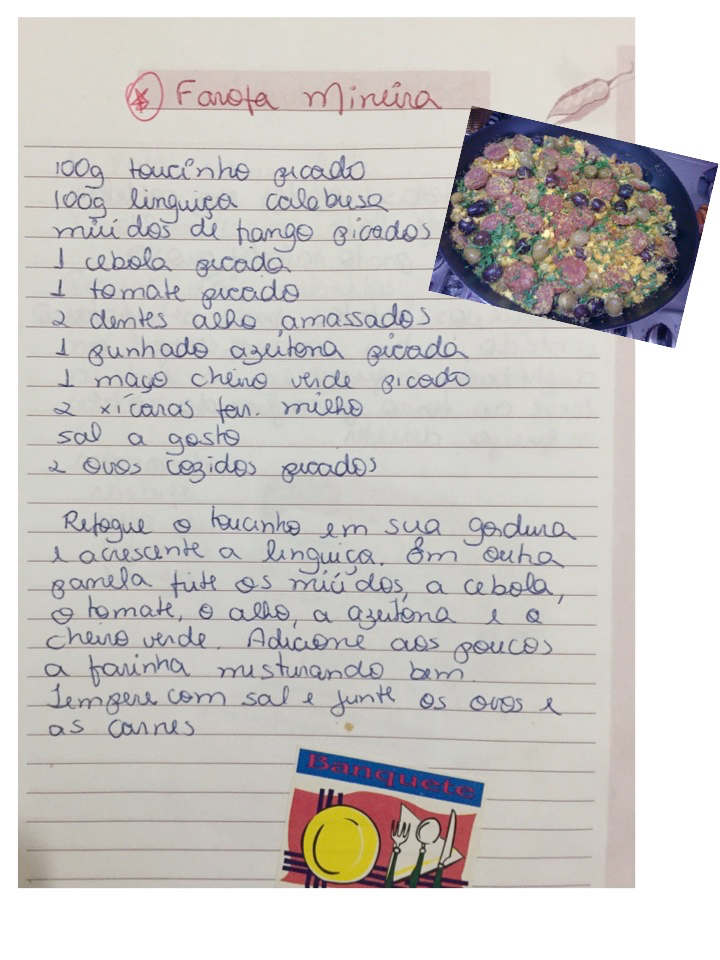 Farofa Mineira
100g toucinho picado
100g linguiça calabusa
miúdos de frango picados
1 cebola picada
1 tomate picado
2 dentes alho amassados
1 punhado azeitona picada
1 maço cheiro verde picado
2 xícaras far. milho
sal a gosto
2 ovos cozidos picados
Refogue o toucinho em sua gordura
e acrescente a linguiça. Em outra
panela frite os miúdos, a cebola,
o tomate, o alho, a azeitona e o
cheiro verde. Adicione aos poucos
a farinha misturando bem.
Tempere com sal e junte os ovos e
as carnes
Banquete